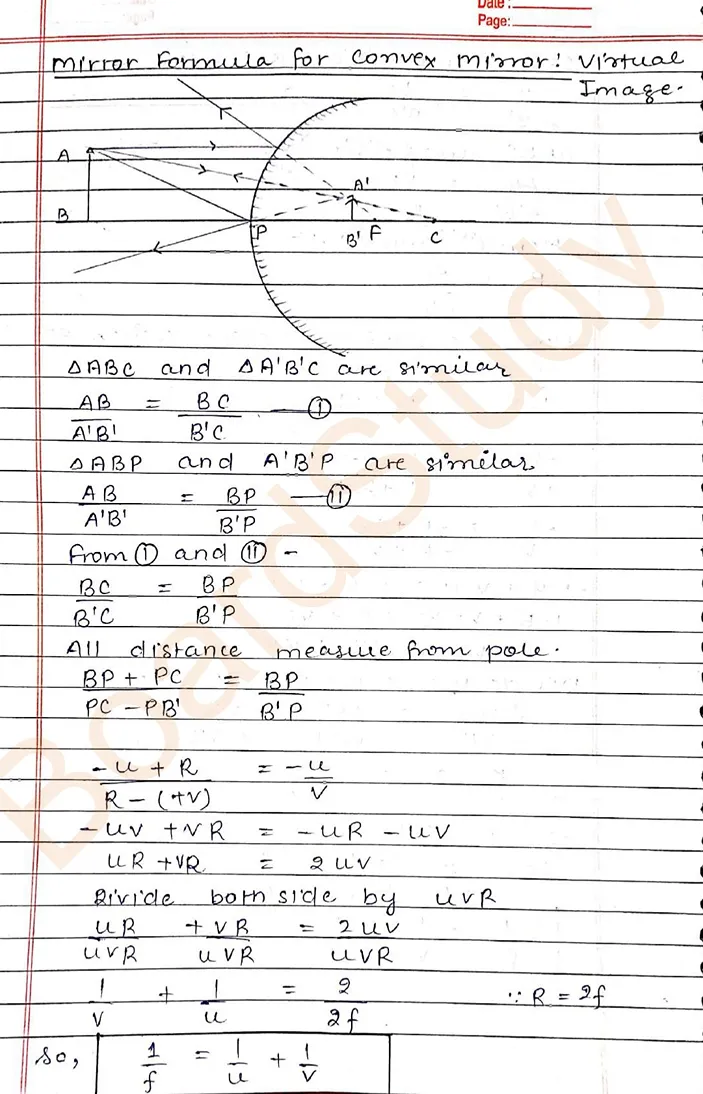 Date :
Page:
Mirror Formula for Convex mirror: Virtual
Image.
A
B
P
A'
B'
F
C
△ABC and △A'B'C are similar
AB/A'B' = BC/B'C — (I)
△ABP and A'B'P are similar
AB/A'B' = BP/B'P — (II)
From (I) and (II) -
BC/B'C = BP/B'P
All distance measure from pole.
BP + PC/PC - PB' = BP/B'P
-u + R/R - (+v) = -u/v
-uv + vR = -uR - uv
uR + vR = 2uv
Divide both side by uvR
uR/uvR + vR/uvR = 2uv/uvR
1/v + 1/u = 2/2f ∵ R = 2f
so, 1/f = 1/u + 1/v
BoardStudy